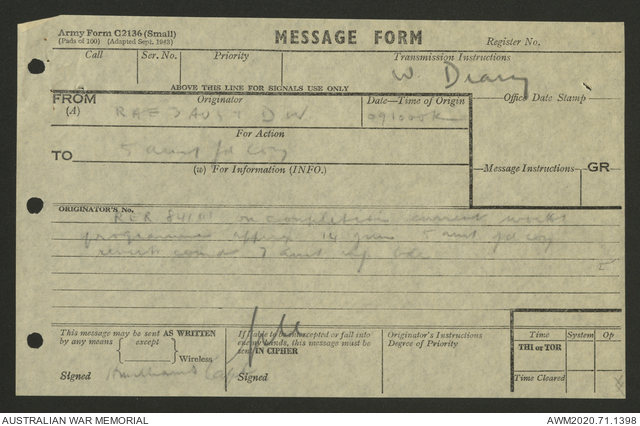 Army Form C2136 (Small)
(Pads of 100) (Adapted Sept. 1943)
MESSAGE FORM
Register No.
Call
Ser. No.
Priority
Transmission Instructions
W Diary
ABOVE THIS LINE FOR SIGNALS USE ONLY
FROM
(A)
Originator
RAE 3 AUST DIV
Date—Time of Origin
091000K
Office Date Stamp
For Action
TO
5 aust fd coy
(w) For Information (INFO.)
Message Instructions
GR
ORIGINATOR'S No.
on completion current works
programme approx 14 Jun 5 aust fd coy
reverts comd 7 aust inf bde
This message may be sent AS WRITTEN
by any means
except
Wireless
Signed
Capt
If liable to be intercepted or fall into
enemy hands, this message must be
sent IN CIPHER
Signed
Originator's Instructions
Degree of Priority
Time
System
Op
THI or TOR
Time Cleared
AUSTRALIAN WAR MEMORIAL
AWM2020.71.1398